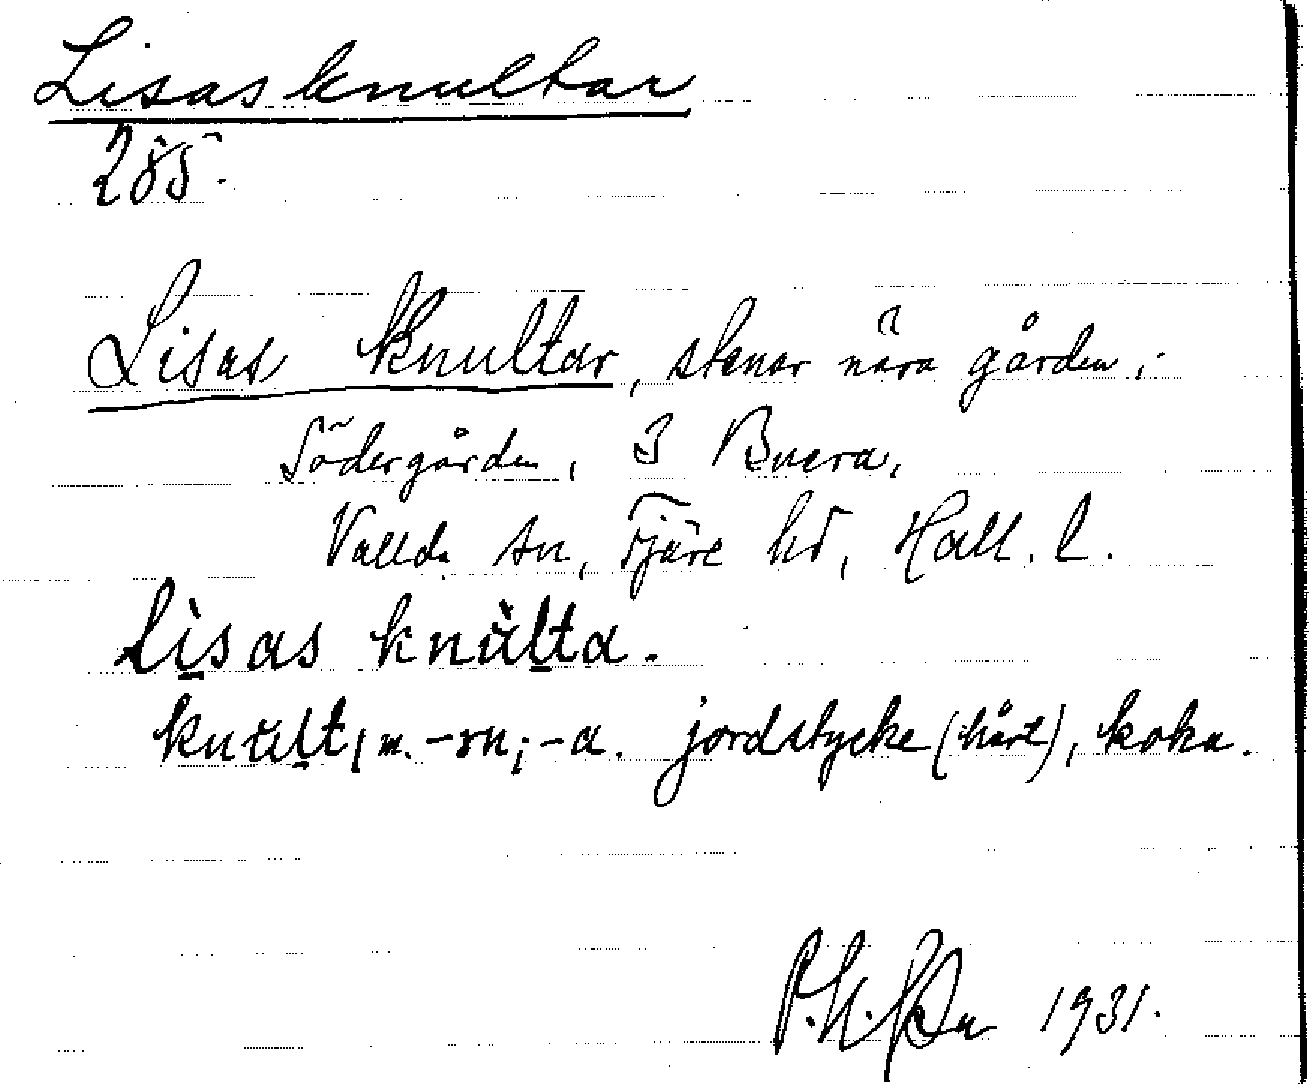 Lisas knultar
285.
Lisas Knultar, stenar nära gården;
Södergården, 3 Buera,
Vallda sn, Fjäre hd, Hall. l.
lisas knùlta.
knult, m. -sn; -a. jordstycke (hårt), koka.
1931.